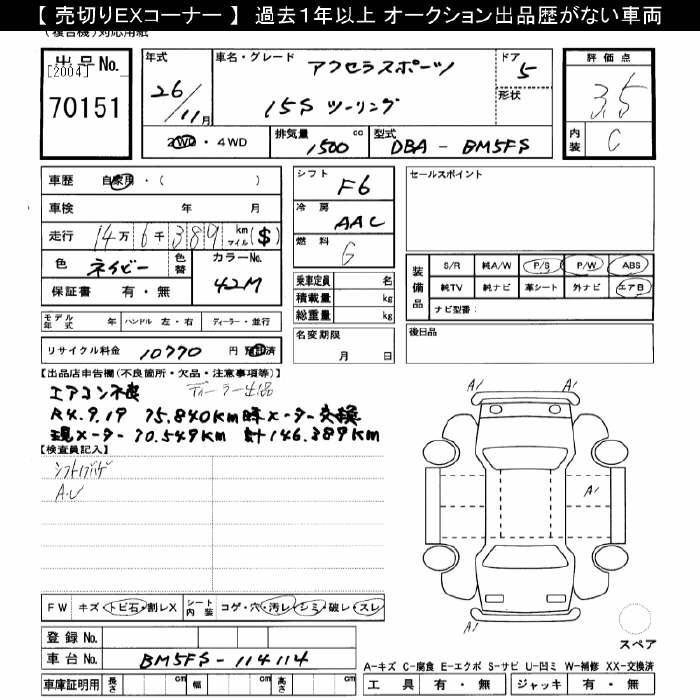 【 売切りEXコーナー 】 過去1年以上 オークション出品歴がない車両
(複合機)対応用紙
出品No.
[2004]
70151
年式
26/11月
車名・グレード
アクセラスポーツ
15S ツーリング
ドア
5
形状
評価点
3.5
内装
C
2WD ・ 4WD
排気量
1500 cc
型式
DBA - BM5FS
車歴 自家用 ・ ( )
車検 年 月
走行 14万 6千 389 km マイル ($)
色 ネイビー 色替 カラーNo. 42M
保証書 有 ・ 無
シフト
F6
冷房
AAC
燃料
G
セールスポイント
乗車定員 名
積載量 kg
総重量 kg
装備品
S/R 純A/W P/S P/W ABS
純TV 純ナビ 革シート 外ナビ エアB
ナビ型番:
モデル年式 年 ハンドル 左・右 ディーラー・並行
名変期限
月 日
後日品
リサイクル料金 10770 円 預託済
【出品店申告欄(不良箇所・欠品・注意事項等)】
エアコン不良 ディーラー出品
R4.9.19 75.840KM時メーター交換
現メーター 70.549KM 計146.389KM
【検査員記入】
A/
A/
A/
A/
FW キズ・トビ石・割レX シート内装 コゲ・穴・汚レ・シミ・破レ・スレ
スペア
登録No.
車台No. BM5FS-114114
A-キズ C-腐食 E-エクボ S-サビ U-凹ミ W-補修 XX-交換済
車庫証明用 長さ cm 幅 cm 高さ cm
工具 有・無 ジャッキ 有・無